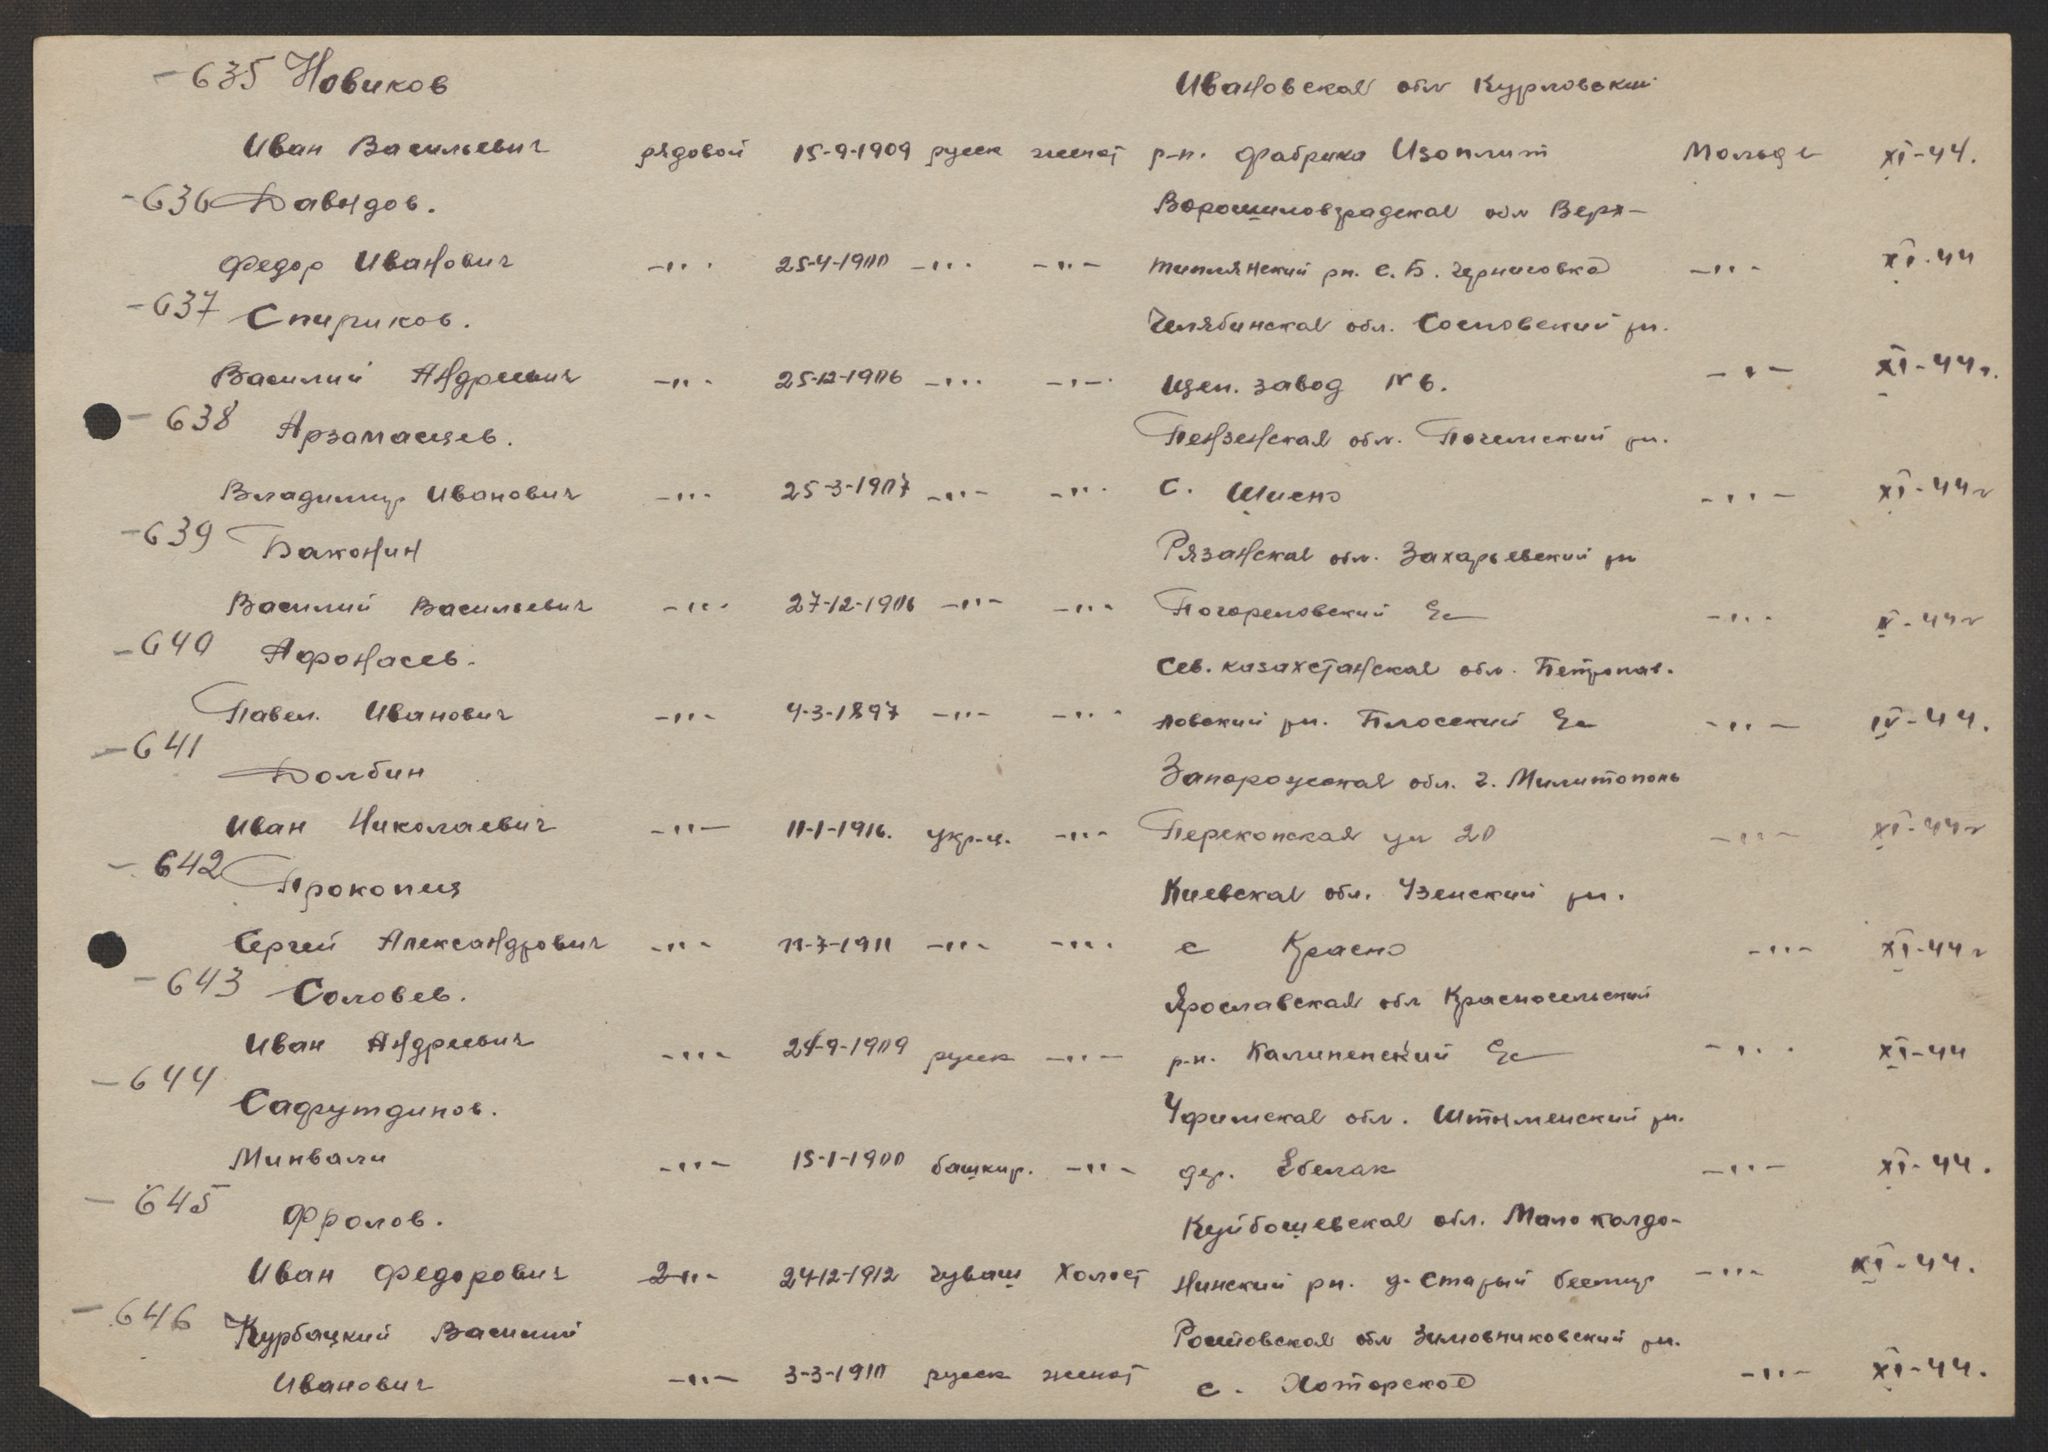 635 Новиков Ивановская обл Курловский
Иван Васильевич рядовой 15-9-1909 русск женат р-н. фабрика Изоплит Мольде XI-44.
636 Давыдов. Ворошиловградская обл Верх-
Федор Иванович -"- 25-4-1900 -"- -"- нетеплянский рн. с. Б. Черниговка -"- XI-44
637 Спириков. Челябинская обл. Сосновский рн.
Василий Андреевич -"- 25-12-1906 -"- -"- Цем. завод № 6. -"- XI-44г.
638 Арзамасцев. Пензенская обл. Пачелмский рн.
Владимир Иванович -"- 25-3-1907 -"- -"- с. -"- XI-44г
639 Баконин Рязанская обл. Захарьевский рн
Василий Васильевич -"- 27-12-1906 -"- -"- Погореловский с/с -"- 44г
640 Афонасев. Сев. казахстанская обл. Петропав-
Павел. Иванович -"- 4-3-1897 -"- -"- ловский рн. Плосский с/с -"- IV-44.
641 Долбин Запорожская обл. г. Милитополь
Иван Николаевич -"- 11-1-1916. укр-ц. -"- Перекопская ул 20 -"- XI-44г
642 Прокопця Киевская обл. Узенский рн.
Сергей Александрович -"- 11-7-1911 -"- -"- с Красно -"- XI-44г
643 Соловев. Ярославская обл Красносельский
Иван Андреевич -"- 24-9-1909 русск -"- р-н. Калиненский с/с -"- XI-44
644 Садрутдинов. Уфимская обл. рн.
Минвали -"- 15-1-1900 башкир. -"- дер. Ебелак -"- XI-44.
645 Фролов. Куйбошевская обл. Малокалдо-
Иван Федорович -"- 24-12-1912 чуваш холост нинский рн. д. Старый -"- XI-44.
646 Курбацкий Василий Ростовская обл Зимовниковский рн.
Иванович -"- 3-3-1910 русск женат с. Хоторское -"- XI-44.